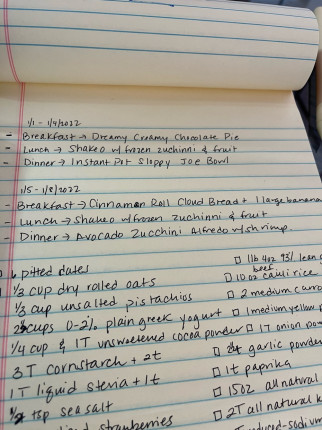 1/1 - 1/4/2022
- Breakfast → Dreamy Creamy Chocolate Pie
- Lunch → Shakeo w/ frozen zuchinni & fruit
- Dinner → Instant Pot Sloppy Joe Bowl
1/5 - 1/8/2022
- Breakfast → Cinnamon Roll Cloud Bread + 1 large banana
- Lunch → Shakeo w/ frozen zuchinni & fruit
- Dinner → Avocado Zucchini Alfredo w/ shrimp
6 pitted dates
1/3 cup dry rolled oats
1/3 cup unsalted pistachios
cups 0-2% plain greek yogurt
1/4 cup & 1T unsweetened cocoa powder
3T cornstarch + 2t
1T liquid stevia + 1t
tsp sea salt
strawberries
1lb 4oz 95% lean
beef
10oz cauli rice
2 medium
1 medium yellow
1T onion
garlic powder
1t paprika
15oz all natural
2T all natural
reduced-sodium